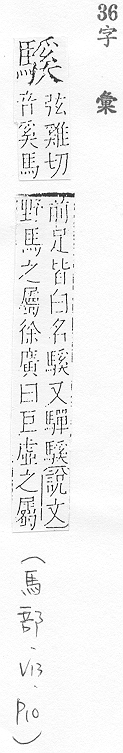 36
字彙
騱
弦雞切
音奚馬
前足皆白名騱又驒騱說文
野馬之屬徐廣曰巨虛之屬
(馬部.V13.P10)